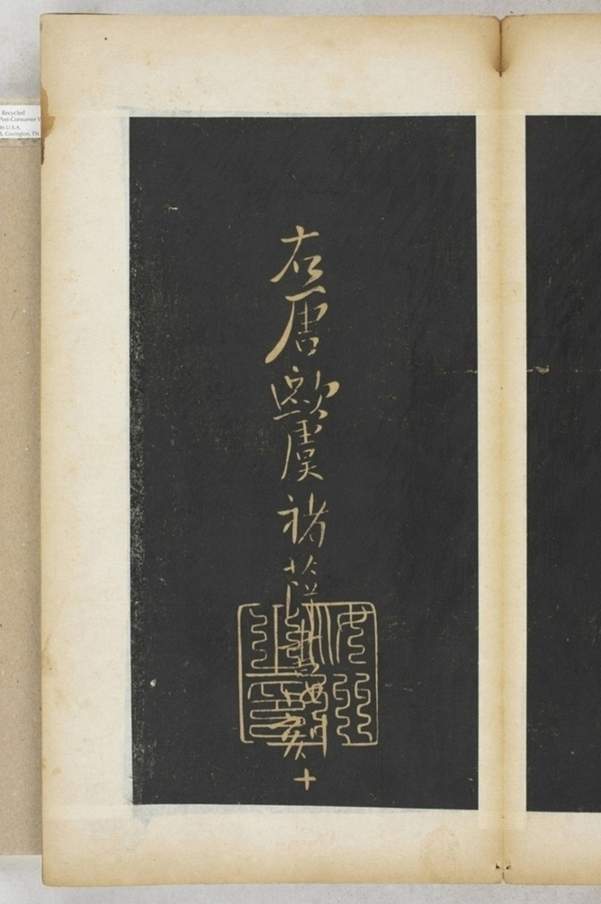 右唐歐虞褚薛書刻十
Recycled
Post-Consumer
U.S.A.
Covington, TN